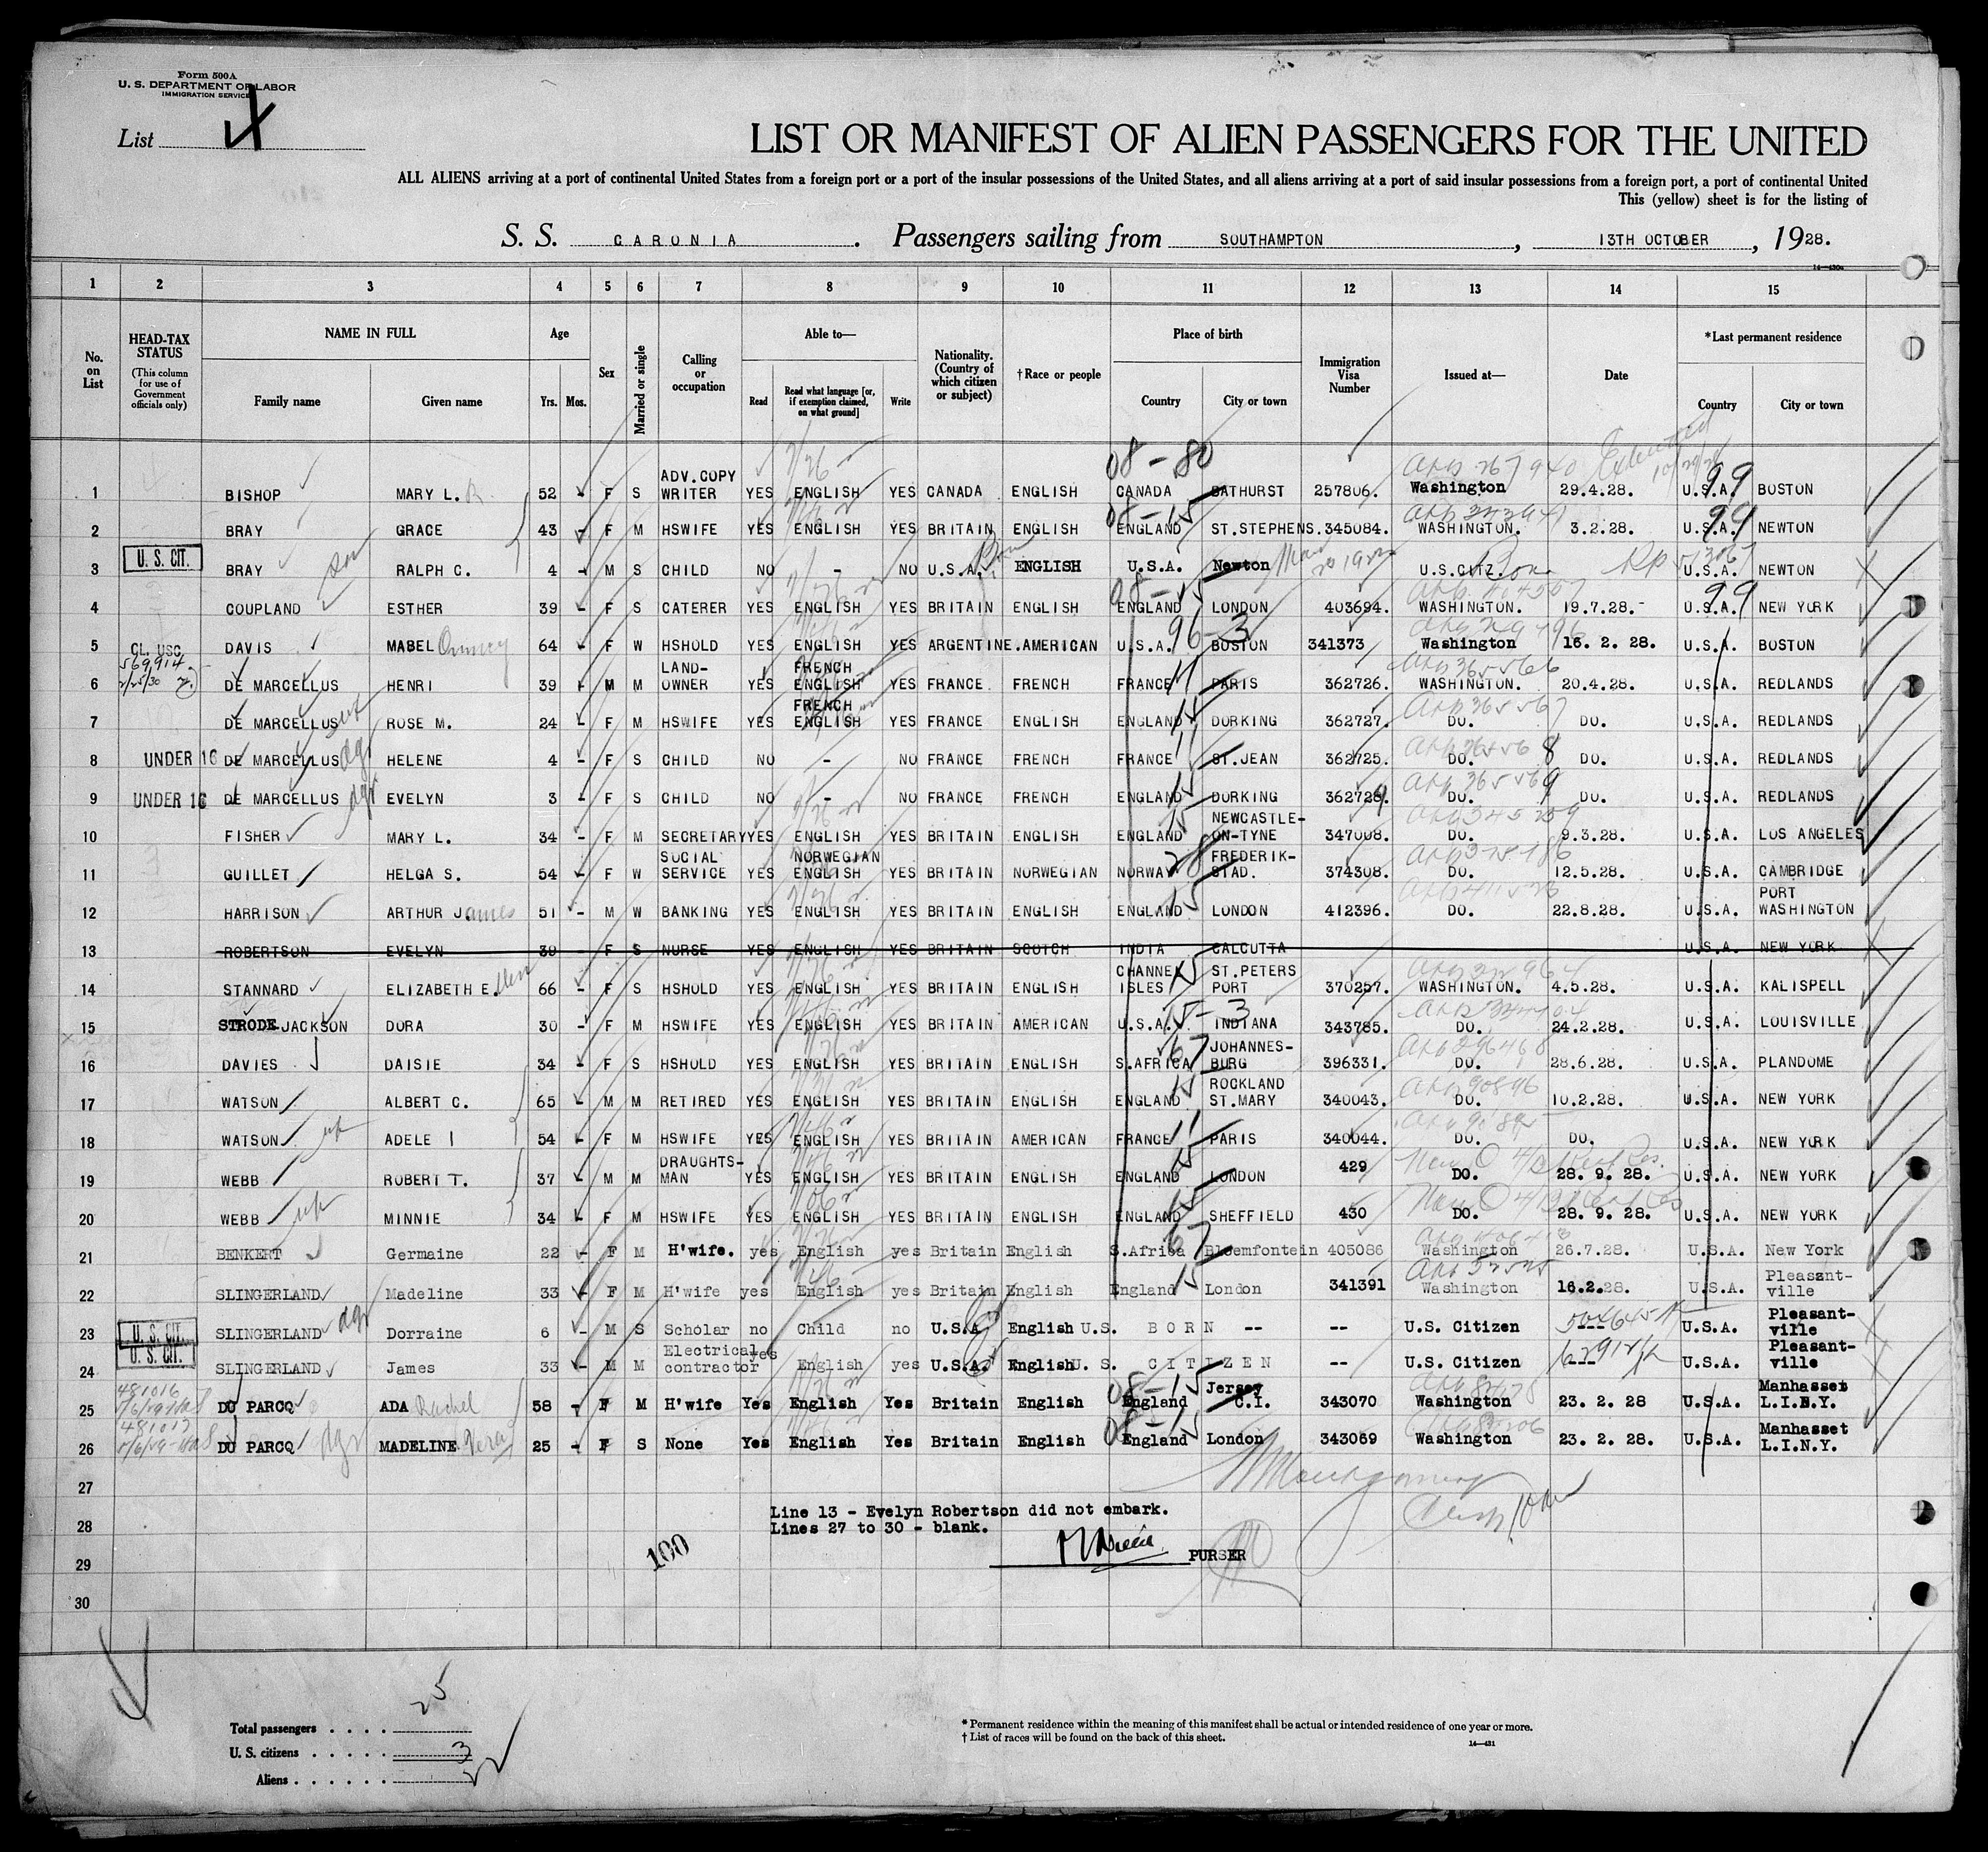 Form 500A
U. S. DEPARTMENT OF LABOR
IMMIGRATION SERVICE
List
LIST OR MANIFEST OF ALIEN PASSENGERS FOR THE UNITED
ALL ALIENS arriving at a port of continental United States from a foreign port or a port of the insular possessions of the United States, and all aliens arriving at a port of said insular possessions from a foreign port, a port of continental United
This (yellow) sheet is for the listing of
S. S. CARONIA. Passengers sailing from SOUTHAMPTON, 13TH OCTOBER, 1928.
1 2 3 4 5 6 7 8 9 10 11 12 13 14 15
No. on List
HEAD-TAX STATUS (This column for use of Government officials only)
NAME IN FULL
Family name Given name
Age
Yrs. Mos.
Sex
Married or single
Calling or occupation
Able to—
Read Read what language [or, if exemption claimed, on what ground] Write
Nationality. (Country of which citizen or subject)
†Race or people
Place of birth
Country City or town
Immigration Visa Number
Issued at—
Date
*Last permanent residence
Country City or town
08 - 80
1 BISHOP MARY L. 52 - F S ADV.COPY WRITER YES ENGLISH YES CANADA ENGLISH CANADA BATHURST 257806. Washington 29.4.28. U.S.A. 99 BOSTON
2 BRAY GRACE 43 - F M HSWIFE YES ENGLISH YES BRITAIN ENGLISH ENGLAND ST.STEPHENS. 345084. WASHINGTON. 3.2.28. U.S.A. 99 NEWTON
3 U. S. CIT. BRAY son RALPH C. 4 - M S CHILD NO - NO U.S.A. ENGLISH U.S.A. Newton U.S.CITZ. U.S.A. NEWTON
4 COUPLAND ESTHER 39 - F S CATERER YES ENGLISH YES BRITAIN ENGLISH ENGLAND LONDON 403694. WASHINGTON. 19.7.28. U.S.A. 99 NEW YORK
5 CL. USC. DAVIS MABEL Quincy 64 - F W HSHOLD YES ENGLISH YES ARGENTINE. AMERICAN U.S.A. 96-3 BOSTON 341373 Washington 16. 2. 28. U.S.A. BOSTON
569,914
2/25/30
6 DE MARCELLUS HENRI 39 - M M LAND-OWNER YES FRENCH ENGLISH YES FRANCE FRENCH FRANCE 11 PARIS 362726. WASHINGTON. 20.4.28. U.S.A. REDLANDS
7 DE MARCELLUS ROSE M. 24 - F M HSWIFE YES FRENCH ENGLISH YES FRANCE ENGLISH ENGLAND 15 DORKING 362727. DO. DO. U.S.A. REDLANDS
8 UNDER 16 DE MARCELLUS dgr HELENE 4 - F S CHILD NO - NO FRANCE FRENCH FRANCE 11 ST.JEAN 362725. DO. DO. U.S.A. REDLANDS
9 UNDER 16 DE MARCELLUS dgr EVELYN 3 - F S CHILD NO - NO FRANCE FRENCH ENGLAND 15 DORKING 362724 DO. DO. U.S.A. REDLANDS
10 FISHER MARY L. 34 - F M SECRETARY YES ENGLISH YES BRITAIN ENGLISH ENGLAND 15 NEWCASTLE-ON-TYNE 347008. DO. 9.3.28. U.S.A. LOS ANGELES
11 GUILLET HELGA S. 54 - F W SOCIAL SERVICE YES NORWEGIAN ENGLISH YES BRITAIN NORWEGIAN NORWAY 28 FREDERIK-STAD. 374308. DO. 12.5.28. U.S.A. CAMBRIDGE
12 HARRISON ARTHUR James 51 - M W BANKING YES ENGLISH YES BRITAIN ENGLISH ENGLAND 15 LONDON 412396. DO. 22.8.28. U.S.A. PORT WASHINGTON
13 ROBERTSON EVELYN 39 - F S NURSE YES ENGLISH YES BRITAIN SCOTCH INDIA CALCUTTA U.S.A. NEW YORK
14 STANNARD ELIZABETH E. 66 - F S HSHOLD YES ENGLISH YES BRITAIN ENGLISH CHANNEL ISLES 15 ST.PETERS PORT 370257. WASHINGTON. 4.5.28. U.S.A. KALISPELL
15 STRODE-JACKSON DORA 30 - F M HSWIFE YES ENGLISH YES BRITAIN AMERICAN U.S.A. 15-3 INDIANA 343785. DO. 24.2.28. U.S.A. LOUISVILLE
16 DAVIES DAISIE 34 - F S HSHOLD YES ENGLISH YES BRITAIN ENGLISH S.AFRICA 67 JOHANNES-BURG 396331. DO. 28.6.28. U.S.A. PLANDOME
17 WATSON ALBERT C. 65 - M M RETIRED YES ENGLISH YES BRITAIN ENGLISH ENGLAND 15 ROCKLAND ST.MARY 340043. DO. 10.2.28. U.S.A. NEW YORK
18 WATSON ADELE I 54 - F M HSWIFE YES ENGLISH YES BRITAIN AMERICAN FRANCE 11 PARIS 340044. DO. DO. U.S.A. NEW YORK
19 WEBB ROBERT T. 37 - M M DRAUGHTS-MAN YES ENGLISH YES BRITAIN ENGLISH ENGLAND 15 LONDON 429 DO. 28. 9. 28. U.S.A. NEW YORK
20 WEBB MINNIE 34 - F M HSWIFE YES ENGLISH YES BRITAIN ENGLISH ENGLAND 15 SHEFFIELD 430 DO. 28. 9. 28. U.S.A. NEW YORK
21 BENKERT Germaine 22 - F M H'wife. yes English yes Britain English S.Africa 67 Bloemfontein 405086 Washington 26.7.28. U.S.A. New York
22 SLINGERLAND Madeline 33 - F M H'wife yes English yes Britain English England 15 London 341391 Washington 16.2.28. U.S.A. Pleasant-ville
23 U. S. CIT. SLINGERLAND dgr Dorraine 6 - M S Scholar no Child no U.S.A. English U.S. BORN -- -- U.S. Citizen --- U.S.A. Pleasant-ville
24 U. S. CIT. SLINGERLAND James 33 - M M Electrical contractor yes English yes U.S.A. English U.S. CITIZEN -- U.S. Citizen --- U.S.A. Pleasant-ville
25 481016 DU PARCQ ADA Rachel 58 - F M H'wife Yes English Yes Britain English England 08-15 Jersey C.I. 343070 Washington 23. 2. 28 U.S.A. Manhasset L.I.N.Y.
26 481017 DU PARCQ dgr MADELINE Vera 25 - F S None Yes English Yes Britain English England 08-15 London 343069 Washington 23. 2. 28. U.S.A. Manhasset L.I.N.Y.
27
28
29
30
Line 13 - Evelyn Robertson did not embark.
Lines 27 to 30 - blank.
PURSER
100
Total passengers . . . . 25
U. S. citizens . . . . . 3
Aliens . . . . . . 22
*Permanent residence within the meaning of this manifest shall be actual or intended residence of one year or more.
†List of races will be found on the back of this sheet.
14—431